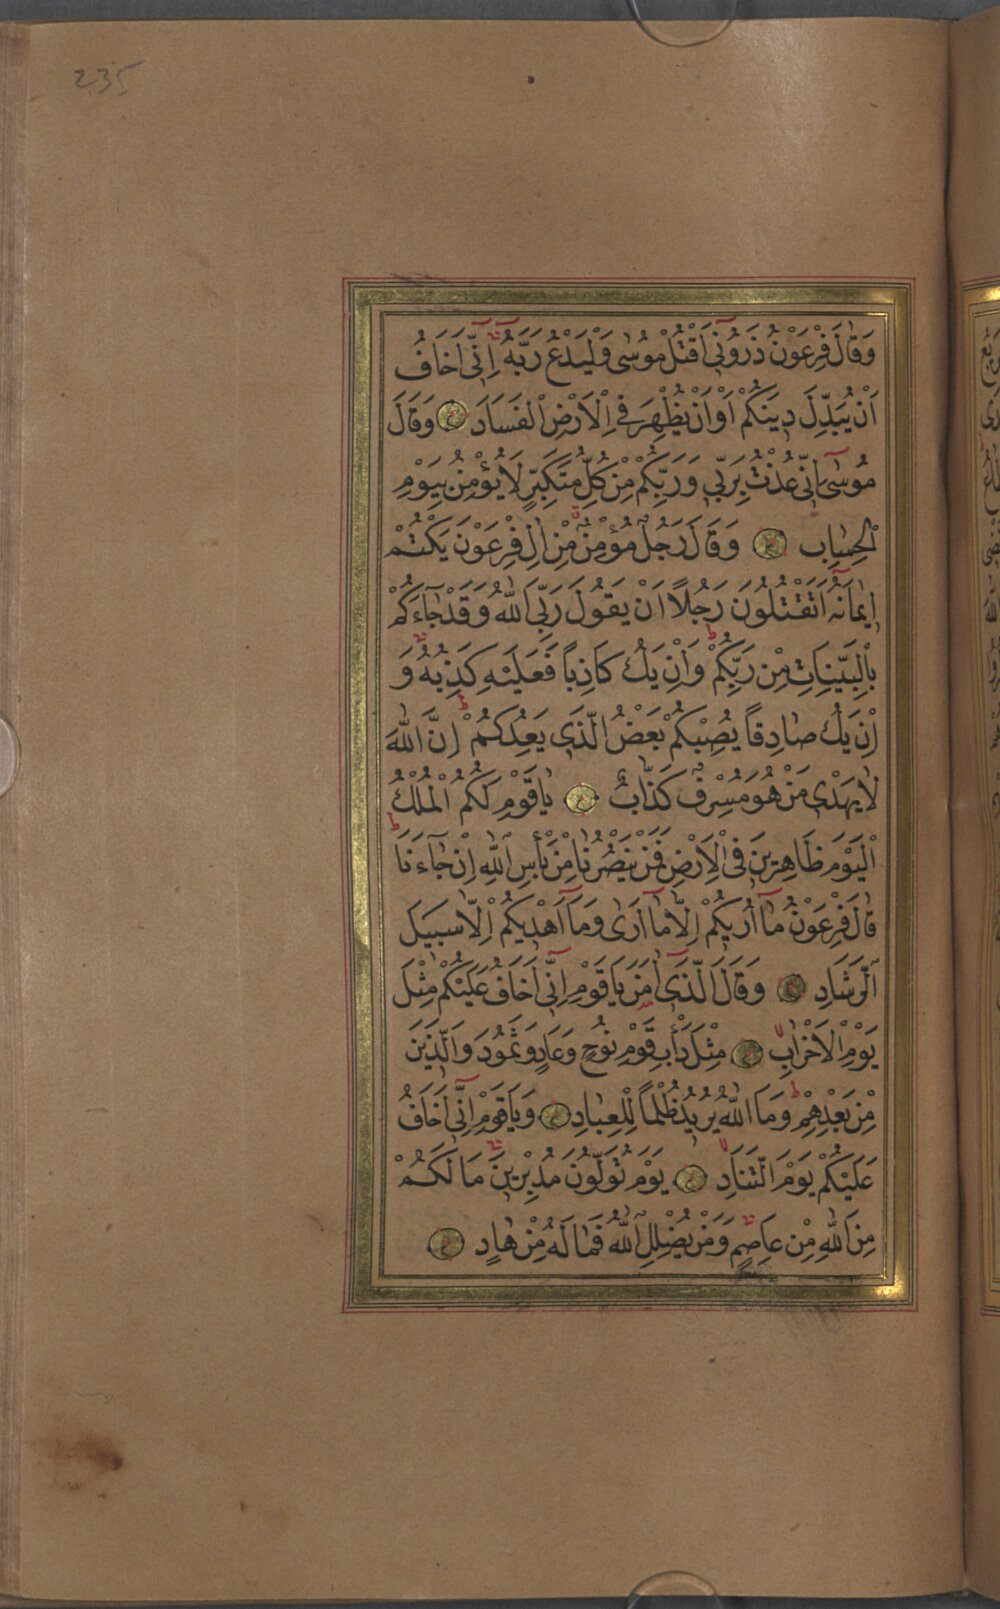 235
وَقَالَ فِرْعَوْنُ ذَرُونِٓي اَقْتُلْ مُوسٰى وَلْيَدْعُ رَبَّهُ اِنِّٓي اَخَافُ
اَنْ يُبَدِّلَ دِينَكُمْ اَوْ اَنْ يُظْهِرَ فِي الْاَرْضِ الْفَسَادَ وَقَالَ
مُوسٰٓى اِنِّي عُذْتُ بِرَبِّي وَرَبِّكُمْ مِنْ كُلِّ مُتَكَبِّرٍ لَا يُؤْمِنُ بِيَوْمِ
الْحِسَابِ وَقَالَ رَجُلٌ مُؤْمِنٌ مِنْ اٰلِ فِرْعَوْنَ يَكْتُمُ
اِيمَانَهُٓ اَتَقْتُلُونَ رَجُلًا اَنْ يَقُولَ رَبِّيَ اللّٰهُ وَقَدْ جَٓاءَكُمْ
بِالْبَيِّنَاتِ مِنْ رَبِّكُمْ وَاِنْ يَكُ كَاذِبًا فَعَلَيْهِ كَذِبُهُ وَ
اِنْ يَكُ صَادِقًا يُصِبْكُمْ بَعْضُ الَّذِي يَعِدُكُمْ اِنَّ اللّٰهَ
لَا يَهْدِي مَنْ هُوَ مُسْرِفٌ كَذَّابٌ يَا قَوْمِ لَكُمُ الْمُلْكُ
الْيَوْمَ ظَاهِرِينَ فِي الْاَرْضِ فَمَنْ يَنْصُرُنَا مِنْ بَأْسِ اللّٰهِ اِنْ جَٓاءَنَا
قَالَ فِرْعَوْنُ مَٓا اُرِيكُمْ اِلَّا مَٓا اَرٰى وَمَٓا اَهْدِيكُمْ اِلَّا سَبِيلَ
الرَّشَادِ وَقَالَ الَّذِٓي اٰمَنَ يَا قَوْمِ اِنِّٓي اَخَافُ عَلَيْكُمْ مِثْلَ
يَوْمِ الْاَحْزَابِ مِثْلَ دَأْبِ قَوْمِ نُوحٍ وَعَادٍ وَثَمُودَ وَالَّذِينَ
مِنْ بَعْدِهِمْ وَمَا اللّٰهُ يُرِيدُ ظُلْمًا لِلْعِبَادِ وَيَا قَوْمِ اِنِّٓي اَخَافُ
عَلَيْكُمْ يَوْمَ التَّنَادِ يَوْمَ تُوَلُّونَ مُدْبِرِينَ مَا لَكُمْ
مِنَ اللّٰهِ مِنْ عَاصِمٍ وَمَنْ يُضْلِلِ اللّٰهُ فَمَا لَهُ مِنْ هَادٍ